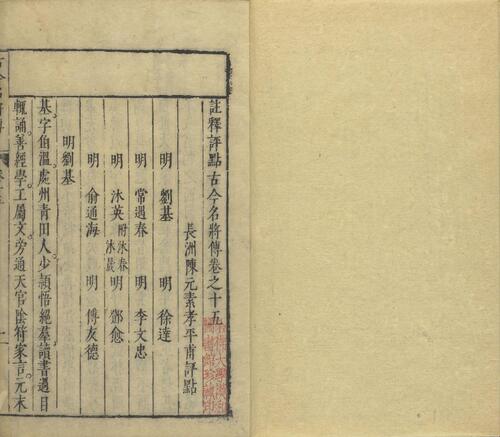 註釋評點古今名將傳卷之十五
長洲陳元素孝平甫評點
明 劉基 明 徐達
明 常遇春 明 李文忠
明 沐英附沐春沐晟 明 鄧愈
明 俞通海 明 傅友德
明劉基
基字伯溫。處州青田人。少穎悟絕羣。讀書過目
輒誦。善經學。工屬文。旁通天官陰符家言。元末